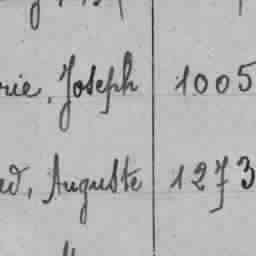 rie, Joseph 1005
ed, Auguste 1273